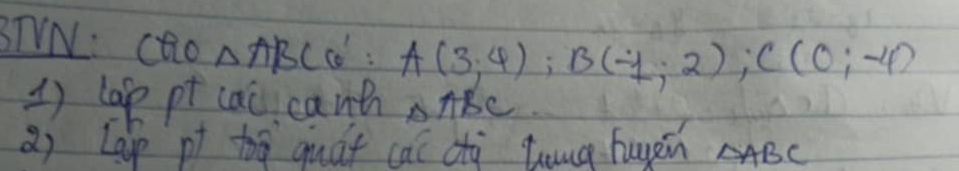 BTVN: Cho △ABC có: A(3;4); B(-1;2); C(0;-4)
1) lập pt các cạnh △ABC.
2) Lập pt tổg quát các đg trung tuyến △ABC